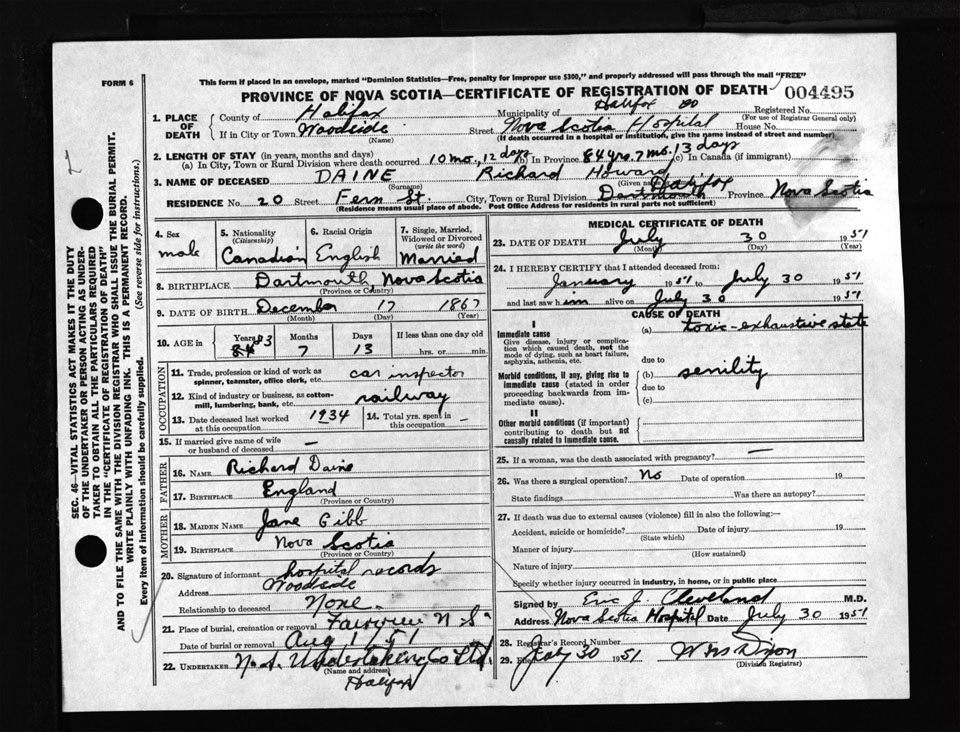 FORM 6
This form if placed in an envelope, marked "Dominion Statistics—Free, penalty for improper use $300," and properly addressed will pass through the mail "FREE"
PROVINCE OF NOVA SCOTIA—CERTIFICATE OF REGISTRATION OF DEATH 004495
1. PLACE OF DEATH
County of Halifax Municipality of Halifax Registered No.
(For use of Registrar General only)
If in City or Town Woodside Street Nova Scotia Hospital House No.
(Name) (If death occurred in a hospital or institution, give the name instead of street and number)
2. LENGTH OF STAY (in years, months and days)
(a) In City, Town or Rural Division where death occurred 10 mo, 12 days (b) In Province 84 yrs. 7 mo. 13 days (c) In Canada (if immigrant)
3. NAME OF DECEASED DAINE Richard Howard
(Surname) (Given name)
Halifax
RESIDENCE No. 20 Street Fern St. City, Town or Rural Division Dartmouth Province Nova Scotia
(Residence means usual place of abode. Post Office Address for residents in rural parts not sufficient)
4. Sex
male
5. Nationality
(Citizenship)
Canadian
6. Racial Origin
English
7. Single, Married, Widowed or Divorced
(write the word)
Married
8. BIRTHPLACE Dartmouth, Nova Scotia
(Province or Country)
9. DATE OF BIRTH December 17 1867
(Month) (Day) (Year)
10. AGE in
Years
84 83
Months
7
Days
13
If less than one day old
hrs. or min.
OCCUPATION
11. Trade, profession or kind of work as spinner, teamster, office clerk, etc. car inspector
12. Kind of industry or business, as cotton-mill, lumbering, bank, etc. railway
13. Date deceased last worked at this occupation 1934
14. Total yrs. spent in this occupation —
15. If married give name of wife or husband of deceased —
FATHER
16. NAME Richard Daine
17. BIRTHPLACE England
(Province or Country)
MOTHER
18. MAIDEN NAME Jane Gibb
19. BIRTHPLACE Nova Scotia
(Province or Country)
20. Signature of informant hospital records
Address Woodside
Relationship to deceased None.
21. Place of burial, cremation or removal Fairview N.S.
Date of burial or removal Aug 1/51
22. UNDERTAKER N.S. Undertaking Co Ltd.
(Name and address)
Halifax
MEDICAL CERTIFICATE OF DEATH
23. DATE OF DEATH July 30 1951
(Month) (Day) (Year)
24. I HEREBY CERTIFY that I attended deceased from:
January 1951 to July 30 1951
and last saw him alive on July 30 1951
CAUSE OF DEATH
I
Immediate cause
Give disease, injury or complication which caused death, not the mode of dying, such as heart failure, asphyxia, asthenia, etc.
(a) toxic-exhaustive state
due to
Morbid conditions, if any, giving rise to immediate cause (stated in order proceeding backwards from immediate cause).
(b) senility
due to
(c)
II
Other morbid conditions (if important) contributing to death but not causally related to immediate cause.
25. If a woman, was the death associated with pregnancy? —
26. Was there a surgical operation? No Date of operation 19
State findings Was there an autopsy?
27. If death was due to external causes (violence) fill in also the following:—
Accident, suicide or homicide? Date of injury 19
(State which)
Manner of injury
(How sustained)
Nature of injury
Specify whether injury occurred in industry, in home, or in public place
Signed by Eric J. Cleveland M.D.
Address Nova Scotia Hospital Date July 30 1951
28. Registrar's Record Number
29. July 30 1951
(Division Registrar)
SEC. 46—VITAL STATISTICS ACT MAKES IT THE DUTY
OF THE UNDERTAKER OR PERSON ACTING AS UNDER-
TAKER TO OBTAIN ALL THE PARTICULARS REQUIRED
IN THE "CERTIFICATE OF REGISTRATION OF DEATH"
AND TO FILE THE SAME WITH THE DIVISION REGISTRAR WHO SHALL ISSUE THE BURIAL PERMIT.
WRITE PLAINLY WITH UNFADING INK. THIS IS A PERMANENT RECORD.
Every item of information should be carefully supplied. (See reverse side for instructions.)